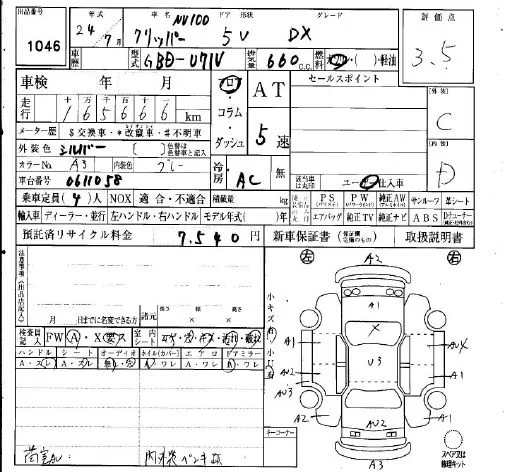 出品番号 1046
年式 24年7月
車名 NV100 クリッパー
ドア 形状 5V
グレード DX
評価点 3.5
車歴
型式 GBD-U71V
排気量 660 c.c.
燃料 ・軽油
車検 年 月
走行 165666 km
十 万 千 百 十
メーター歴 $交換車・*改竄車・#不明車
外装色 シルバー 色替は色替車と記入
カラーNo. A3 内装色 グレー
車台番号 0611058
コラム・ダッシュ
AT 5速
冷房 AC 無
セールスポイント
外装 C
内装 D
該当車は丸印 ユーザー 仕入車
乗車定員(4)人 NOX 適合・不適合 積載量 kg
輸入車 ディーラー・並行 左ハンドル・右ハンドル モデル年式( )年
PS PW 純正AW サンルーフ 革シート
エアバッグ 純正TV 純正ナビ ABS
預託済リサイクル料金 7,540 円
新車保証書 取扱説明書
月 日までに名変できる方
諸元 長さ 幅 高さ × ×
検査員記入 FW A・X 室内シート
ハンドル シート オーディオ ネイル(カバー) エアロ ドアミラー
A・スレ A・スレ A・ワレ A・ワレ
内外装ペンキ
小キズ有り 小凹有り
左 右
A2
A1
A1 X AUX
U3
AU2 A1
AU3
A2 AU2 A1
A3
スペアタイヤ 修理キット